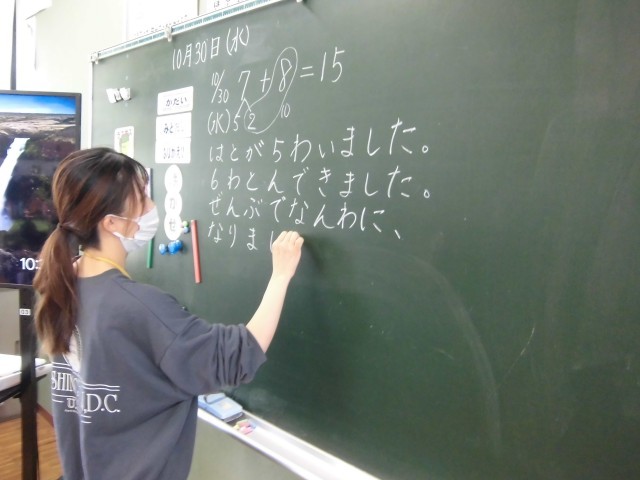 10月30日(水)
10/30 7+8=15
(水) 5 2 10
はとが5わいました。
6わとんできました。
ぜんぶでなんわに、
なりまし
かだい